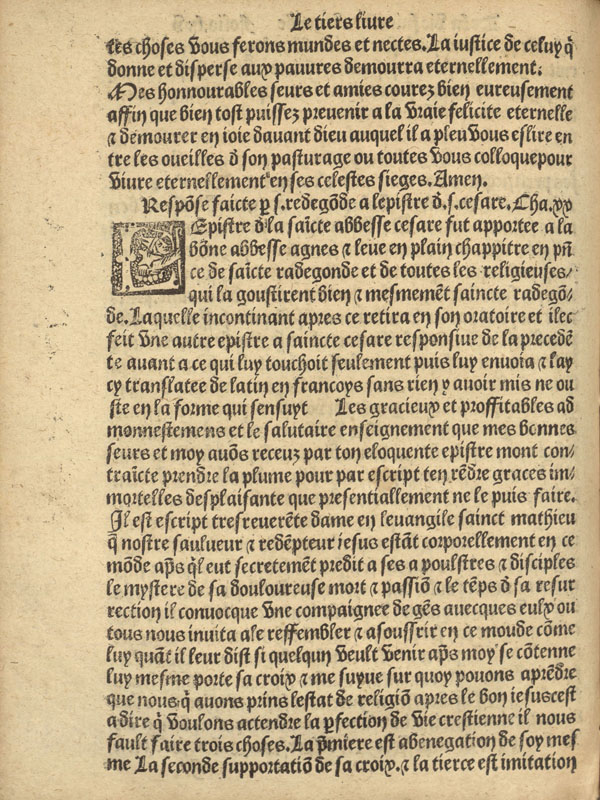 Le tiers liure
tes choses vous ferons mundes et nectes. La iustice de celuy q̄
donne et disperse aux pauures demourra eternellement.
Mes honnourables seurs et amies courez bien eureusement
affin que bien tost puissez preuenir a la vraie felicite eternelle
⁊ demourer en ioie dauant dieu auquel il a pleu vous eslire en
tre les oueilles d̄ son pasturage ou toutes vous colloque pour
viure eternellement en ses celestes sieges. Amen.
Respōse faicte ꝑ s. redegōde a lepistre d̄. s. cesare. Cha. xv
LEpistre d̄ la saīcte abbesse cesare fut apportee a la
bōne abbesse agnes ⁊ leue en plain chappitre en pn̄
ce de saīcte radegonde et de toutes les religieuses/
qui la goustirent bien ⁊ mesmemēt saincte radegō/
de. Laquelle incontinant apres ce retira en son oratoire et ilec
feit vne autre epistre a saincte cesare responsiue de la precedē
te auant a ce qui luy touchoit seulement puis luy enuoia ⁊ lay
cy translatee de latin en francoys sans rien y auoir mis ne ou
ste en la forme qui sensuyt Les gracieux et proffitables ad
monnestemens et le salutaire enseignement que mes bonnes
seurs et moy auōs receuz par ton eloquente epistre mont con/
traīcte prendre la plume pour par escript ten rēdre graces im/
mortelles desplaisante que presentiallement ne le puis faire.
Il est escript tresreuerēte dame en leuangile sainct mathieu
q̄ nostre saulueur ⁊ redēpteur iesus estāt corporellement en ce
mōde apꝭs ql̄ eut secretemēt predit a ses a poulstres ⁊ disciples
le mystere de sa douloureuse mort ⁊ passiō ⁊ le tēps d̄ sa resur
rection il conuocque vne compaignee de gēs auecques eulx ou
tous nous inuita a le reffembler ⁊ a souffrir en ce moude cōme
luy quāt il leur dist si quelqun veult venir apꝭs moy se cōtenne
luy mesme porte sa croix ⁊ me suyue sur quoy pouons aprēdre
que nous q̄ auons prins lestat de religiō apres le bon iesuscest
a dire q̄ voulons actendre la ꝑfection de vie crestienne il nous
fault faire trois choses. La p̄miere est abenegation de soy mes
me La seconde supportatiō de sa croix. ⁊ la tierce est imitation